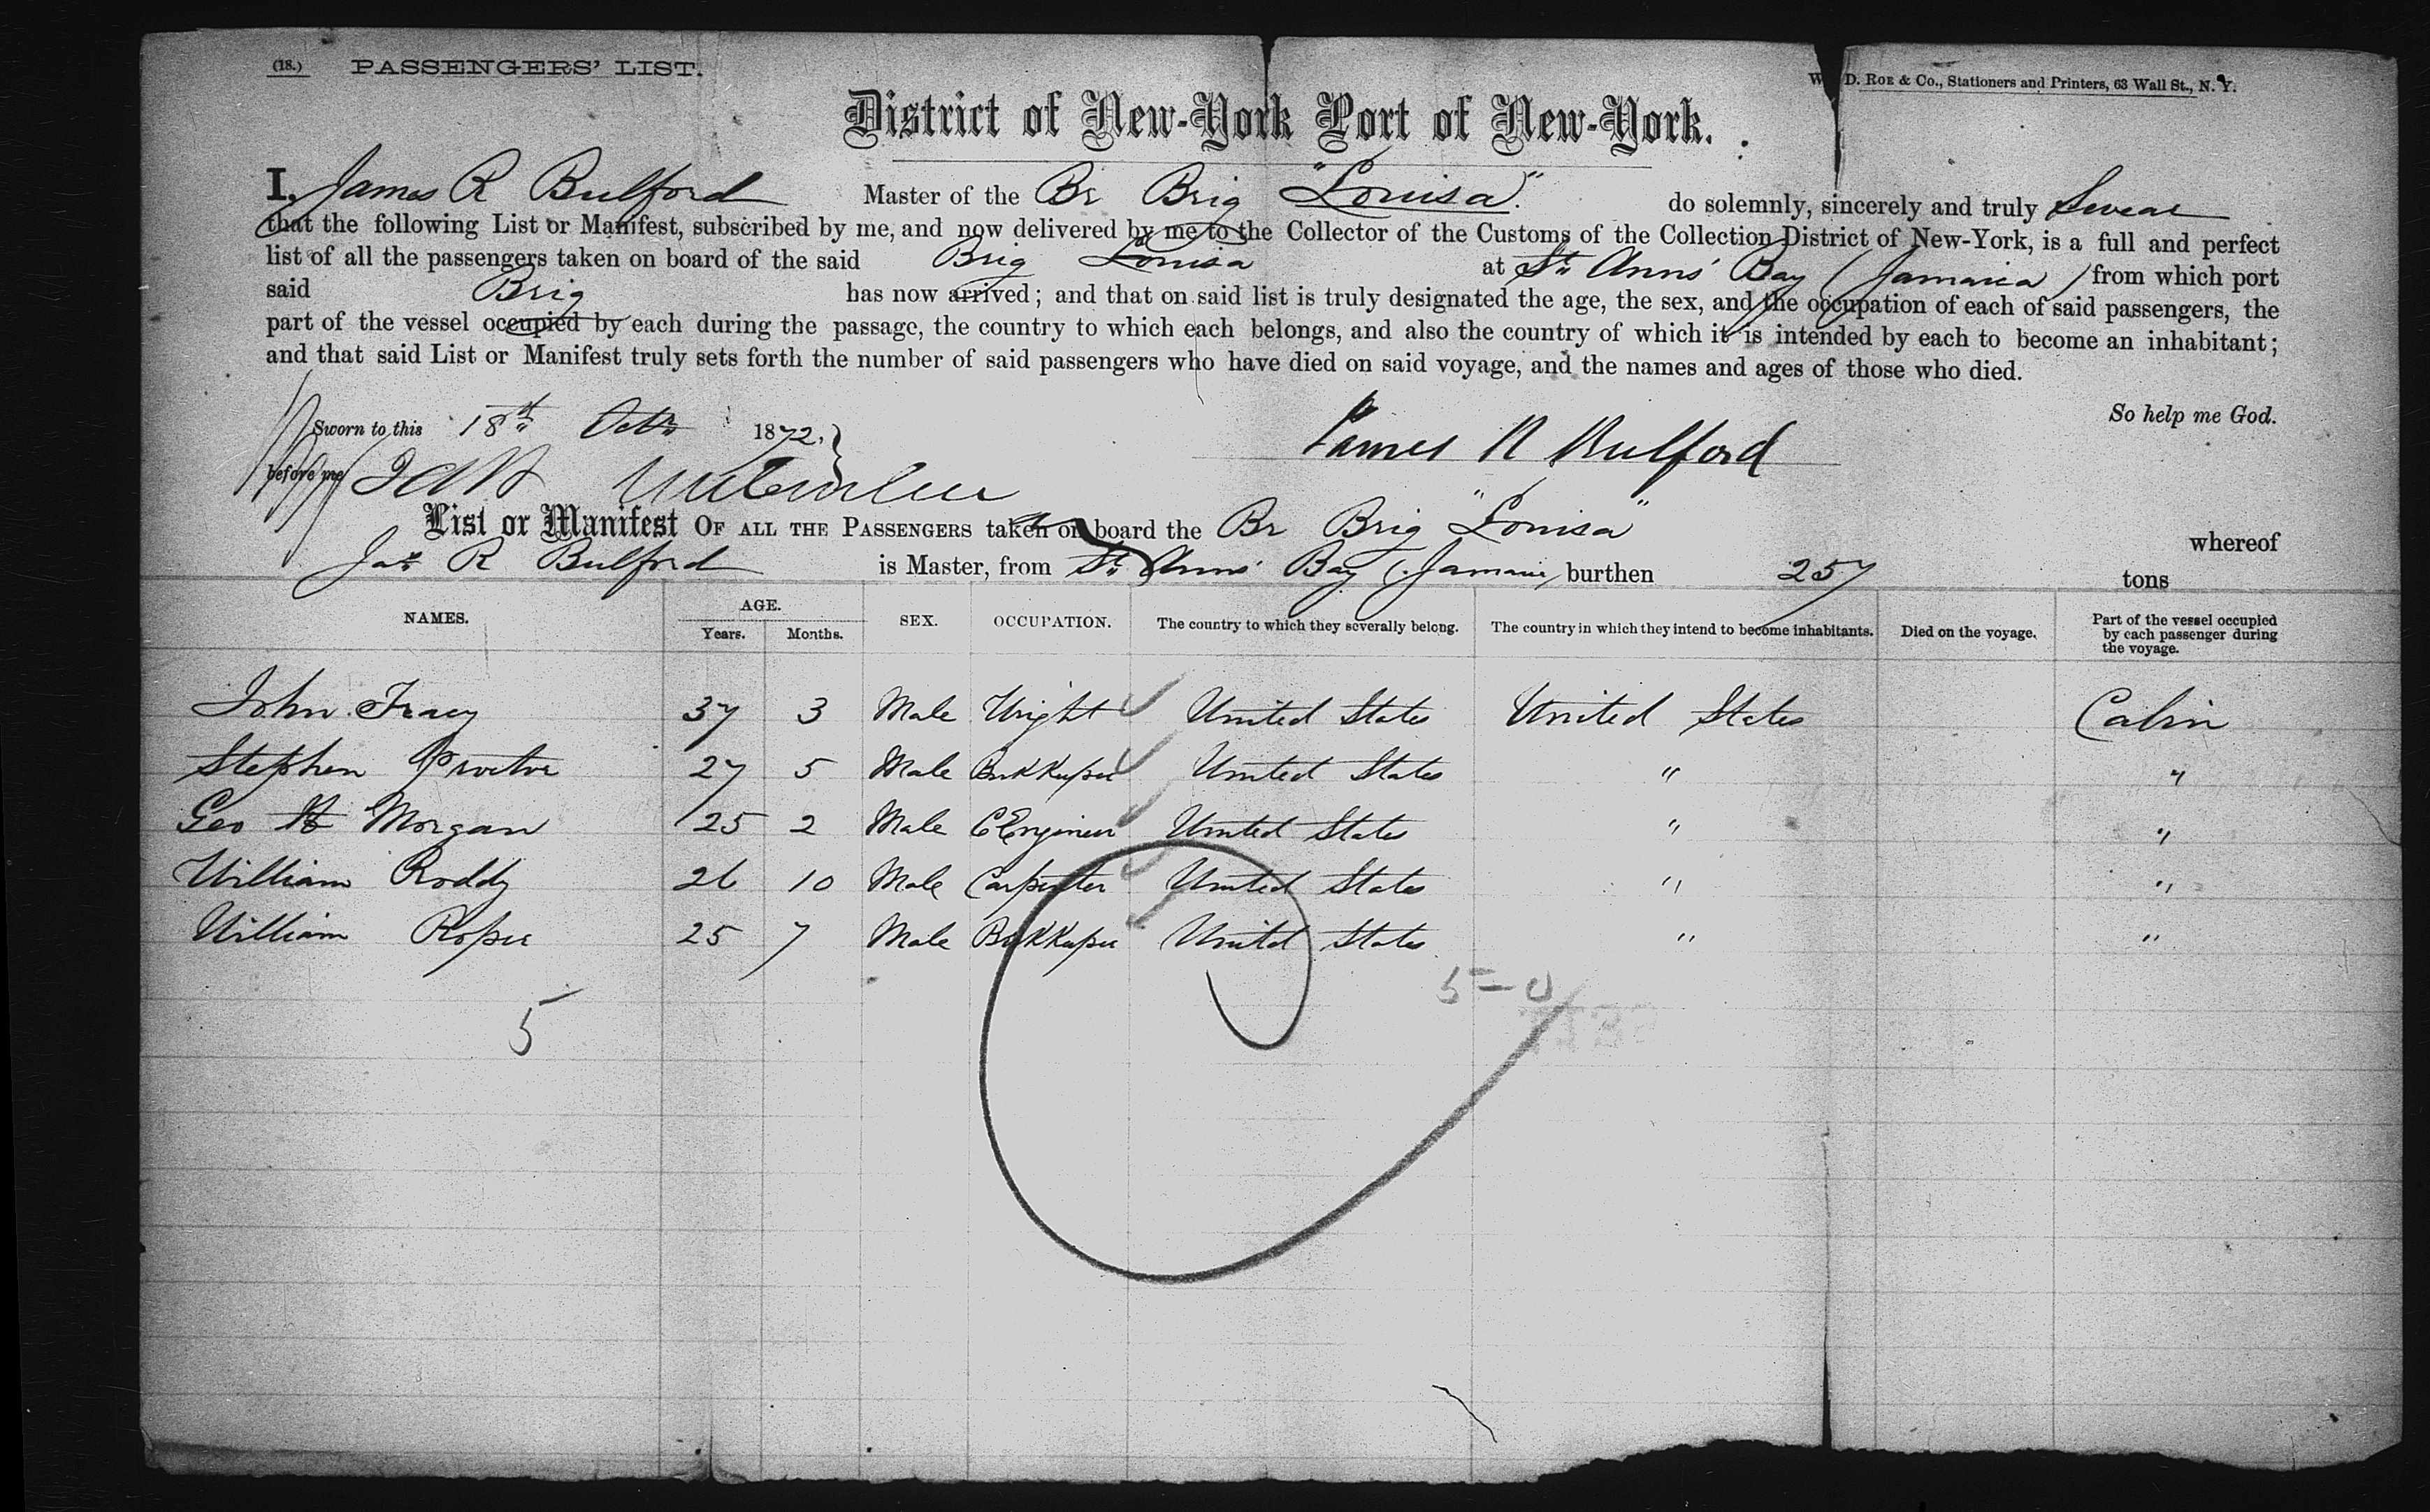 (18.) PASSENGERS' LIST.
D. ROE & Co., Stationers and Printers, 63 Wall St., N. Y.
District of New-York Port of New-York.
I, James R Bulford Master of the Br Brig "Louisa" do solemnly, sincerely and truly Swear
that the following List or Manifest, subscribed by me, and now delivered by me to the Collector of the Customs of the Collection District of New-York, is a full and perfect
list of all the passengers taken on board of the said Brig Louisa at St. Anns' Bay (Jamaica) from which port
said Brig has now arrived; and that on said list is truly designated the age, the sex, and the occupation of each of said passengers, the
part of the vessel occupied by each during the passage, the country to which each belongs, and also the country of which it is intended by each to become an inhabitant;
and that said List or Manifest truly sets forth the number of said passengers who have died on said voyage, and the names and ages of those who died.
So help me God.
Sworn to this 18th Octr 1872.
James R Bulford
before me
List or Manifest OF ALL THE PASSENGERS taken on board the Br Brig "Louisa" whereof
Jas R Bulford is Master, from St. Anns' Bay (Jamaica) burthen 257 tons
NAMES. AGE. Years. Months. SEX. OCCUPATION. The country to which they severally belong. The country in which they intend to become inhabitants. Died on the voyage. Part of the vessel occupied by each passenger during the voyage.
John Tracy 37 3 Male Wright United States United States Cabin
Stephen Proctor 27 5 Male Bookkeeper United States " "
Geo H Morgan 25 2 Male C Engineer United States " "
William Roddy 26 10 Male Carpenter United States " "
William Roper 25 7 Male Bookkeeper United States " "
5 = 0
5